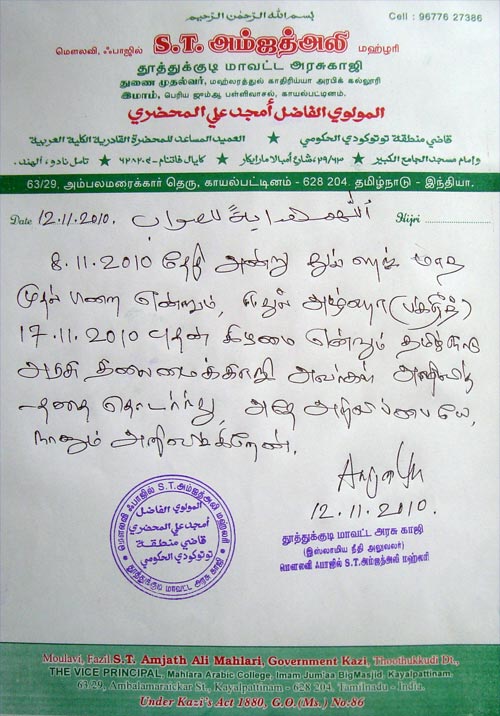 بسم الله الرحمن الرحيم
Cell : 96776 27386
மௌலவி, ஃபாஜில் S.T. அம்ஜத்அலி மஹ்ழரி
தூத்துக்குடி மாவட்ட அரசுகாஜி
துணை முதல்வர், மஹ்லரத்துல் காதிரிய்யா அரபிக் கல்லூரி
இமாம், பெரிய ஜும்ஆ பள்ளிவாசல், காயல்பட்டினம்.
المولوي الفاضل أمجد علي المحضري
قاضي منطقة توتوكودي الحكومي ★ العميد المساعد للمحضرة القادرية الكلية العربية
وإمام مسجد الجامع الكبير ★ ٢٩/٦٣، شارع أمبالا مارايكار ★ كايال فاتنام - ٦٢٨٢٠٤ ★ تامل نادو، الهند.
63/29, அம்பலமரைக்கார் தெரு, காயல்பட்டினம் - 628 204. தமிழ்நாடு - இந்தியா.
Date 12.11.2010. اللهم هداية للصواب Hijri
8.11.2010 தேதி அன்று துல் ஹஜ் மாத
முதல் பிறை என்றும், ஈதுல் அழ்ஹா (பக்ரீத்)
17.11.2010 புதன் கிழமை என்றும் தமிழ்நாடு
அரசு தலைமைக்காஜி அவர்கள் அறிவித்
ததை தொடர்ந்து, அதே அறிவிப்பையே,
நானும் அறிவிக்கிறேன்.
12.11.2010.
தூத்துக்குடி மாவட்ட அரசு காஜி
(இஸ்லாமிய நீதி அலுவலர்)
மௌலவி ஃபாஜில் S.T.அம்ஜத்அலி மஹ்லரி
மௌலவி ஃபாஜில் S.T.அம்ஜத்அலி மஹ்லரி
المولوي الفاضل
أمجد علي المحضري
قاضي منطقة
توتوكودي الحكومي
தூத்துக்குடி மாவட்ட அரசு காஜி
Moulavi, Fazil S.T. Amjath Ali Mahlari, Government Kazi, Thoothukkudi Dt.,
THE VICE PRINCIPAL, Mahlara Arabic College, Imam Jum'aa BigMasjid, Kayalpattinam.
63/29, Ambalamaraickar St., Kayalpattinam - 628 204. Tamilnadu - India.
Under Kazi's Act 1880, G.O.(Ms.) No:86